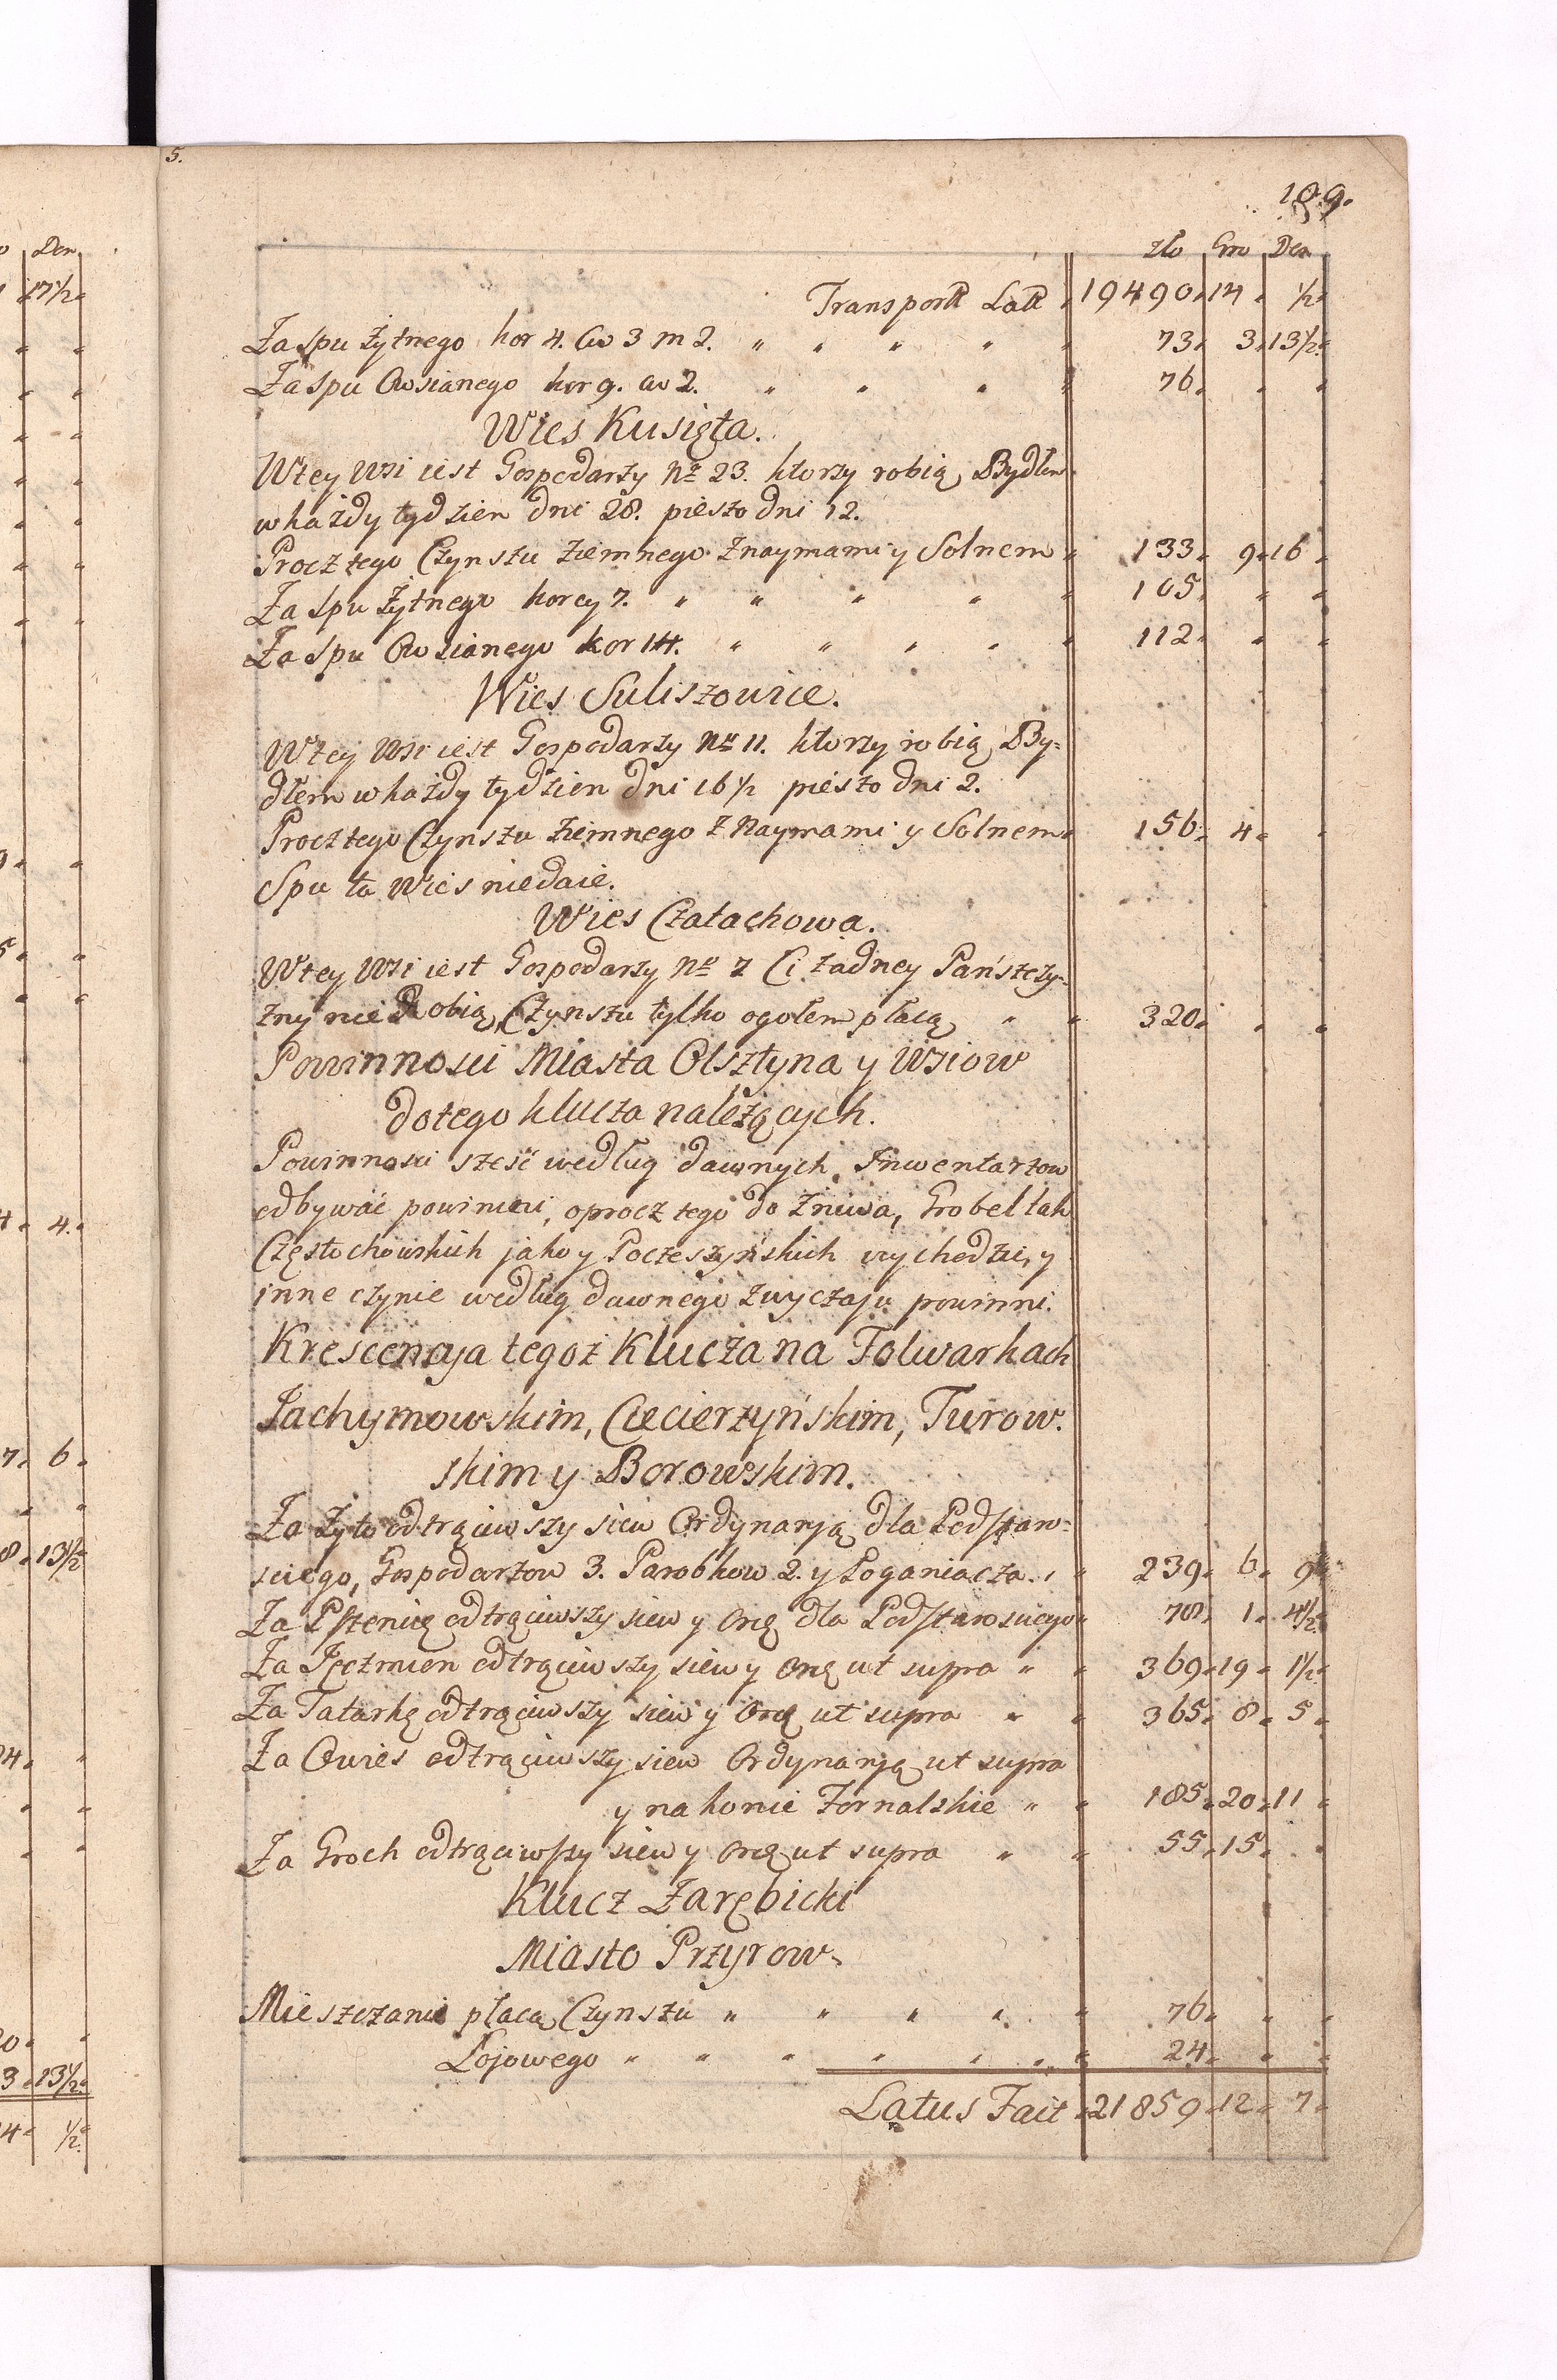 5.
189.
Den
17½
4. 4.
7. 6.
8. 13½
3. 13½
4. ½
zło Gro Den
Transportt Latt 19490. 14. ½
Za spu Żytnego kor 4. ćw 3 m 2. 73. 3. 13½
Za spu Owsianego kor 9. ćw 2. 76.
Wies Kusięta.
Wtey wsi iest Gospodarzy Nro 23. ktorzy robią Bydłem
w każdy tydzien dni 28. pieszo dni 12.
Procz tego Czynszu ziemnego Znaymami y Solnem 133. 9. 16
Za spu Żytnego korcy 7. 105.
Za spu Owsianego kor 14. 112.
Wies Suliszowice.
Wtey wsi iest Gospodarzy Nro 11. ktorzy robią By=
dłem w każdy tydzien dni 16½ pieszo dni 2.
Procz tego Czynszu ziemnego z Naymami y Solnem 156. 4.
Spu ta wies niedaie.
Wies Czatachowa.
Wtey wsi iest Gospodarzy Nro 7 Ci żadney Pańszczy=
zny nie Robią, Czynszu tylko ogołem płacą 320.
Powinnosci Miasta Olsztyna y Wsiow
do tego klucza należących.
Powinnosci sześć według dawnych Inwentarzow
odbywać powinni, oprocz tego do żniwa, Grobel tak
Częstochowskich jako y Poczeszyńskich wychodzić, y
inne czynić według dawnego zwyczaju powinni.
Krescencya tegoż Klucza na Folwarkach
Jachymowskim, Ciecierzyńskim, Turow.
skim y Borowskim.
Za żyto odtrąciwszy siew Ordynaryą dla Podstaro=
sciego, Gospodarzow 3. Parobkow 2. y Poganiacza. 239. 6. 9
Za Pszenicę odtrąciwszy siew y Orę dla Podstarosciego 78. 1. 4½
Za Jęczmien odtrąciwszy siew y Orę ut supra 369. 19. 1½
Za Tatarkę odtrąciwszy siew y Orę ut supra 365. 8. 5
Za Owies odtrąciwszy siew Ordynaryą ut supra
y na konie Fornalskie 185. 20. 11
Za Groch odtrąciwszy siew y Orę ut supra 55. 15.
Klucz Zarębicki
Miasto Przyrow.
Mieszczanie płacą Czynszu 76.
Łojowego 24.
Latus Facit 21859. 12. 7